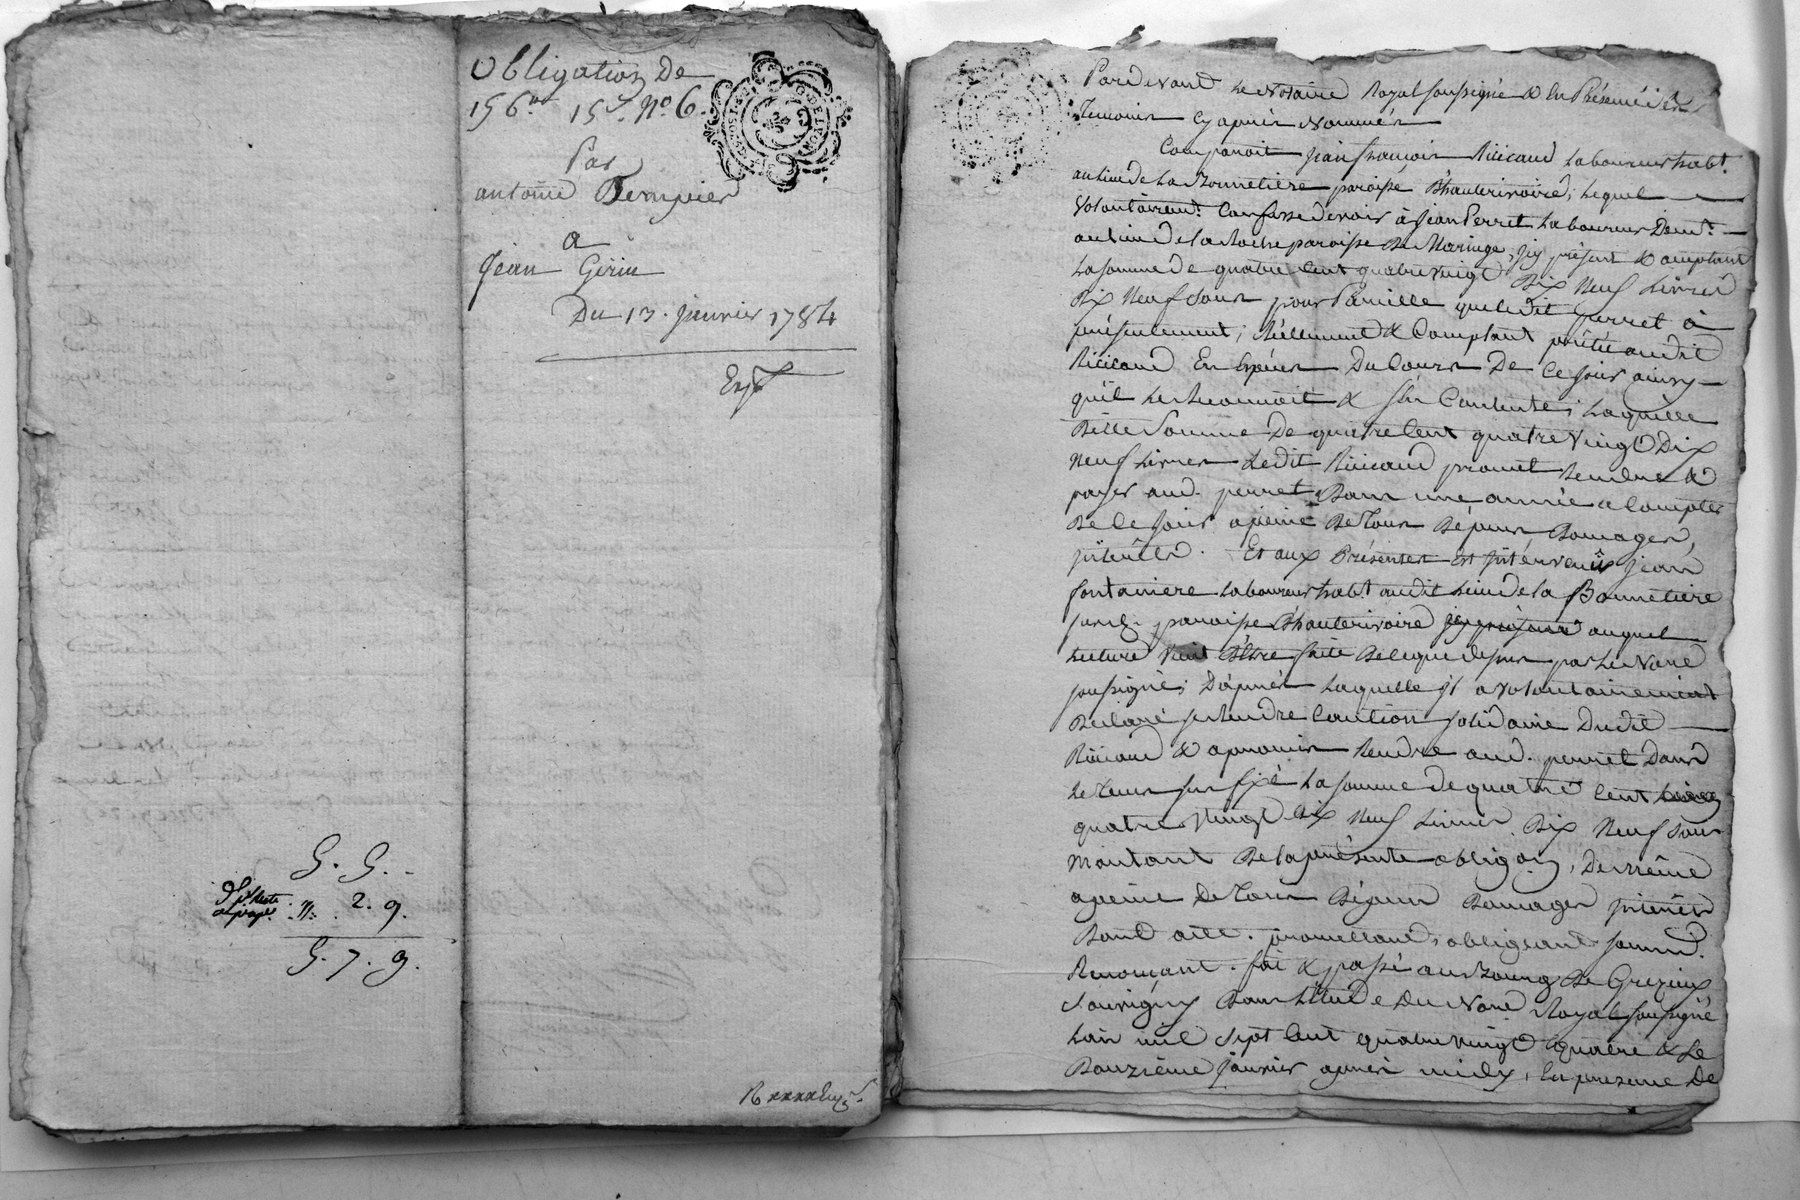 Obligation De
156ᵗᵗ 15ˢ. N.º 6.
Par
antoine Dempuier
a
Jean Gérin
Du 13. janvier 1784
Exp
G. G.
2. 9.
G. 7. 9.
GEN. DE LYON
Pardevant Le Notaire Royal soussigné & En Présence des
Temoins Cy après Nommés
Comparoit jean francois Riicaud Laboureur habt.
au lieu de La Bonnetiere paroisse D'hauterivoire, Lequel
Volontairemt. Confesse devoir à Jean Perret Laboureur Demt.
au lieu de la Roche paroisse De Maringe, jcy présent & acceptant
La somme de quatre Cent quatre vingt Dix Neuf Livres
Dix Neuf sous pour Pareille que ledit perret à
présentement, Réellement & Comptant prêtée audit
Riicaud En Espèces Du Cours De Ce jour ainsy
qu'il Le Reconnoit & s'en Contente, Laquelle
Ditte Somme De quatre Cent quatre Vingt Dix
Neuf Livres Ledit Riicaud promet Rendre &
payer aud. perret Dans une année a Compter
De Ce jour apeine De tous Dépens Domages,
jntérêts. Et aux Présentes Est jntervenu jean
fontaniere Laboureur habt. audit Lieu de la Bonnetiere
susd. paroisse D'hauterivoire auquel
Lecture Vient D'être faite De ce que dessus par Le Nore
soussigné; D'après Laquelle jl a Volontairement
Déclaré se Rendre Caution solidaire Dudit
Riicaud & a promis Rendre aud. perret Dans
Le tems sus fixé La somme de quatre Cent
quatre Vingt Dix Neuf Livres Dix Neuf sous
Montant De la présente obligaon, De même
apeine De tous Dépens Domages jnterêts
Dont acte. promettant, obligeant, soumt.
Renonçant. fait & passé au Bourg De Grezieux
Souvigny Dans L'Etude Du Nore Royal soussigné
L'an mil sept Cent quatre vingt quatre & Le
Douzième janvier après midy, En presence De